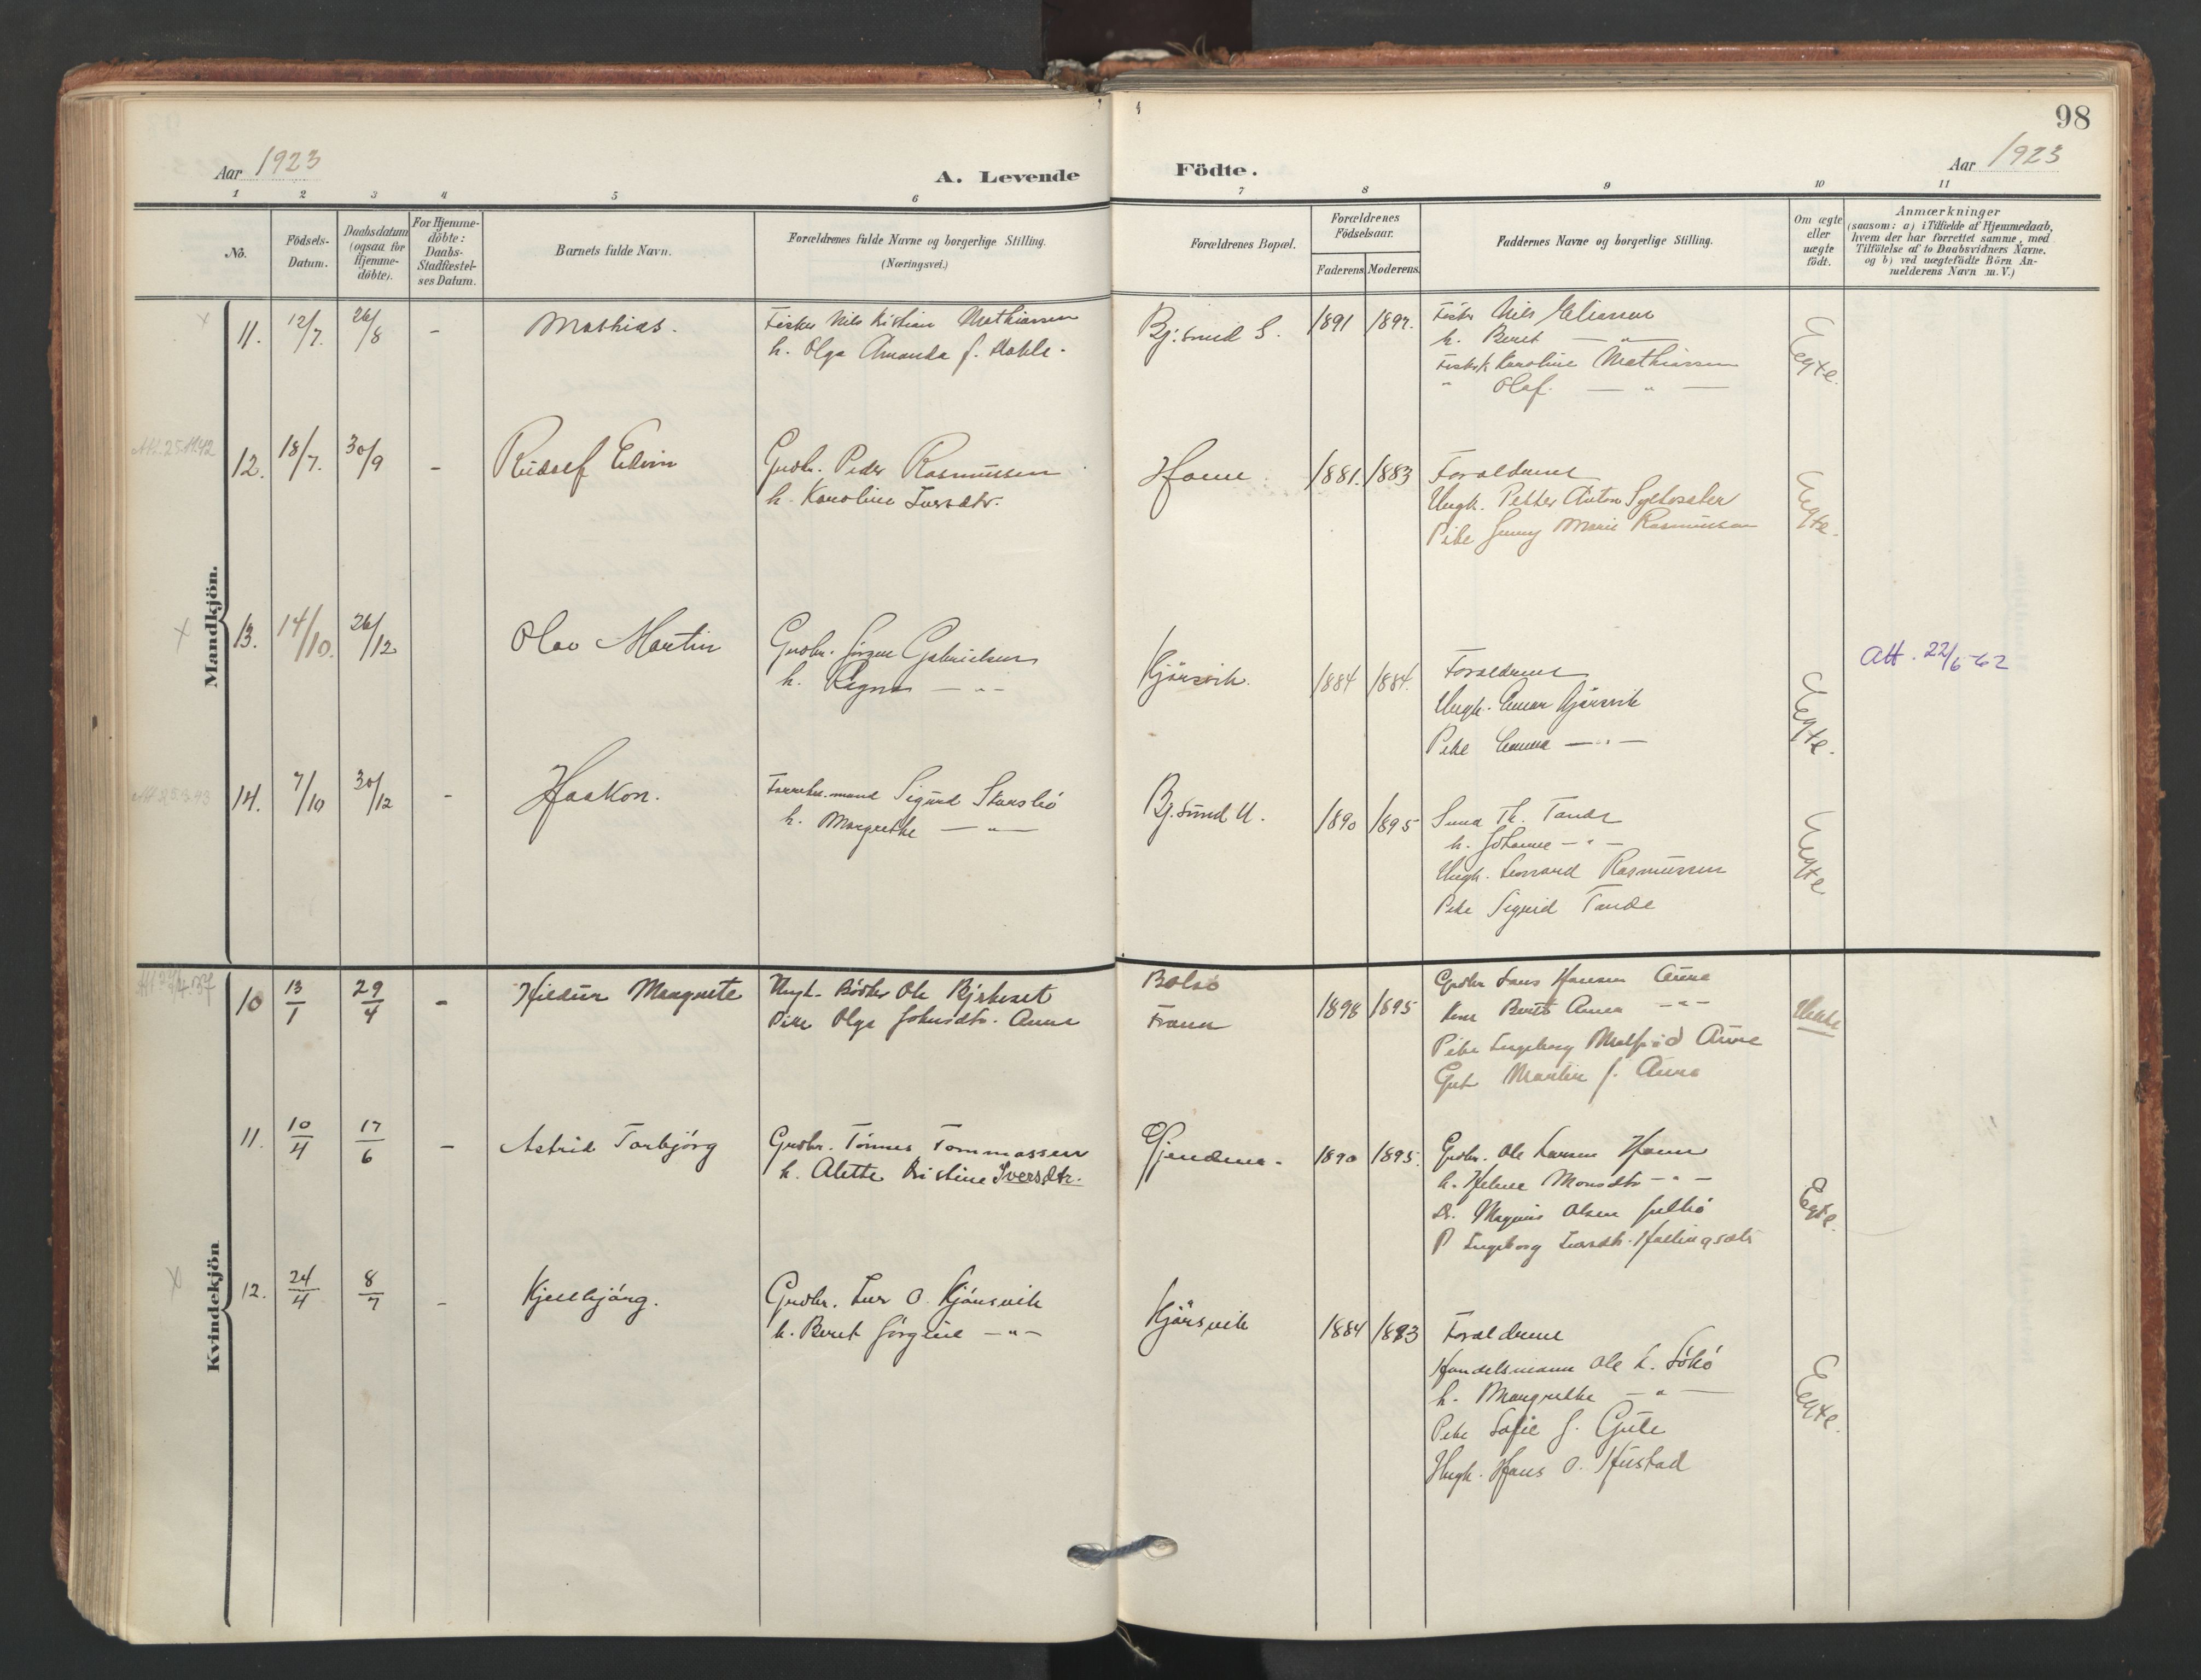 98
Aar 1923
A. Levende
Födte.
Aar 1923
1 2 3 4 5 6 7 8 9 10 11
No.
Födsels-
Datum.
Daabsdatum
(ogsaa for
Hjemme-
döbte).
For Hjemme-
döbte:
Daabs-
Stadfæstel-
ses Datum.
Barnets fulde Navn.
Forældrenes fulde Navne og borgerlige Stilling.
(Næringsvei.)
Forældrenes Bopæl.
Forældrenes
Födselsaar.
Faderens Moderens
Faddernes Navne og borgerlige Stilling.
Om ægte
eller
uægte
födt.
Anmærkninger
(saasom: a) i Tilfælde af Hjemmedaab,
hvem der har forrettet samme, med
Tilföielse af to Daabsvidners Navne,
og b) ved uægtefödte Börn An-
melderens Navn m. V.)
Mandkjön.
11. 12/7. 26/8 - Mathias.
Fisker Nils Kristian Mathiassen
h. Olga Amanda f. Hahle.
Bj.sund S. 1891
Fisker Nils Eliassen
h. Beret — " —
Karoline Mathiassen
" Olaf. — " —
Ægte.
12. 18/7. 30/9 - Rudolf Edvin
Grdbr. Peder Rasmussen
h. Karoline Iversdtr.
1881. 1883
Forældrene
Ungk. Petter Anton
Pike Jenny Marie Rasmussen
Ægte.
13. 14/10. 26/12 Olav Martin
Grdbr. Jörgen Gabrielsen
h. Ragna — " —
Kjörsvik. 1884 1884.
Forældrene
Ungk. Einar Kjörsvik
Pike — " —
Ægte.
Att. 22/6-62
14. 7/10 30/12 - Haakon.
Sigurd
h. Margrethe — " —
Bj.sund U. 1890 1895
Th. Tande
h. Johanne — " —
Ungk. Leonard Rasmussen
Pike Sigrid Tande
Ægte
Kvindekjön
10 13/1 29/4 - Hildur Margrete
Ungk. Bödker Ole Bjerkeset
Pike Olga Johnsdtr. Aune
Bolsö
Fræna
1898 1895
Grdbr Hansen Aune
Kone Berit Aune — " —
Pike Ingeborg Malfrid Aune
Gut Martin J. Aune
Uekte
11. 10/4 17/6 - Astrid Torbjörg
Grdbr. Tönnes Tommassen
h. Alette Kristine Iversdtr.
Gjendem. 1890 1895.
Grdbr. Ole Larsen
h. Helene Monsdtr — " —
Magnus Olsen Julbö
P Ingeborg
Egte.
12. 24/4 8/7 - Kjellbjörg.
Grdbr. Iver O. Kjörsvik
h. Beret Jörgine — " —
Kjörsvik 1884 1893
Forældrene
Handelsmann Ole
h. Margrethe — " —
Pike Sofie J. Gule
Ungk. Hans O. Hustad
Ægte.